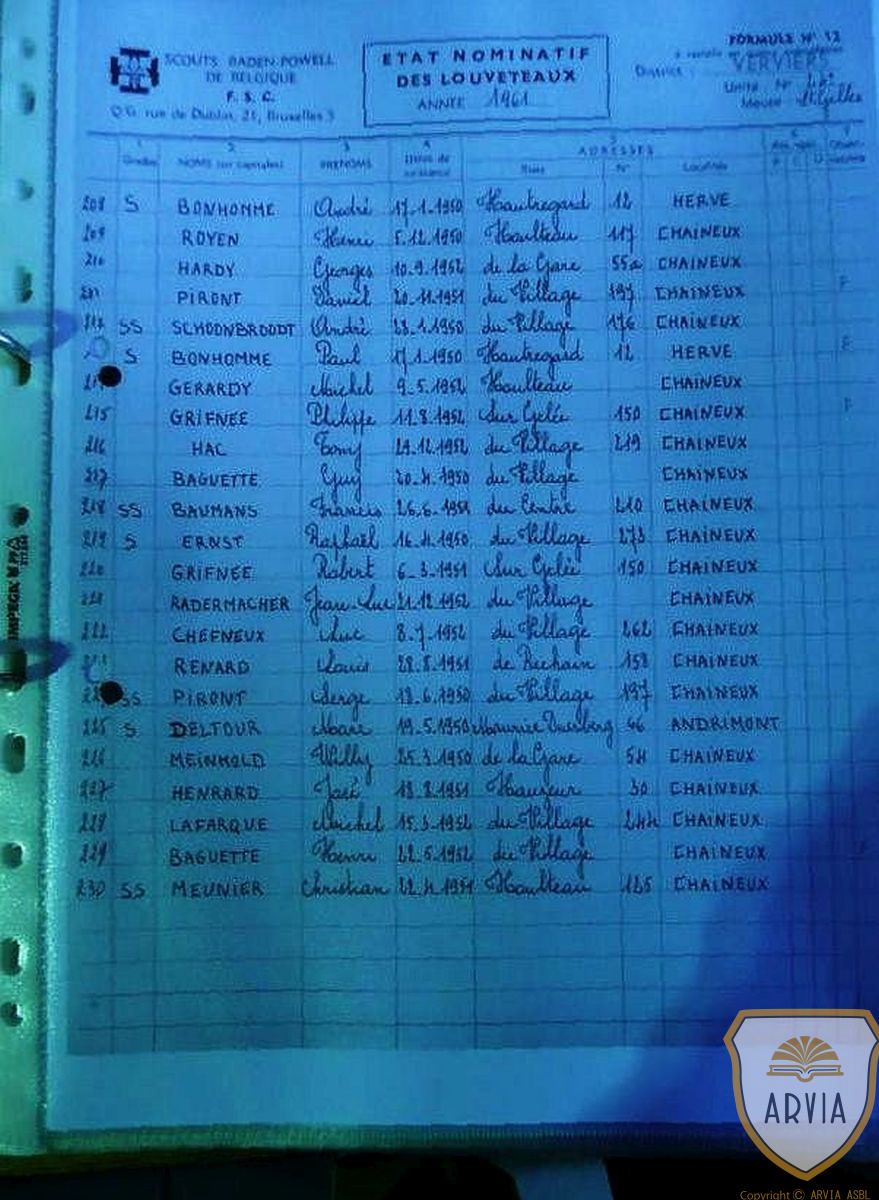 FORMULE N° 12
SCOUTS BADEN-POWELL
DE BELGIQUE
F. S. C.
Q.G. rue de Dublin, 21, Bruxelles 5
ETAT NOMINATIF
DES LOUVETEAUX
ANNÉE 1961
District VERVIERS
Unité N°
Meute St Gilles
1 2 3 4 5 6 7
ADRESSES
Grades NOMS (en capitales) PRENOMS Dates de naissance Rues N° Localités
208 S BONHOMME André 17.1.1950 Hautregard 12 HERVE
209 ROYEN Henri 5.12.1950 Houlteau 117 CHAINEUX
210 HARDY Georges 10.9.1952 de la Gare 55a CHAINEUX
211 PIRONT Daniel 20.11.1951 du Village 197 CHAINEUX F
212 SS SCHOONBROODT André 28.1.1950 du Village 176 CHAINEUX
S BONHOMME Paul 17.1.1950 Hautregard 12 HERVE F
GERARDY Michel 9.5.1952 Houlteau CHAINEUX
215 GRIFNÉE Philippe 11.8.1952 Sur Gelée 150 CHAINEUX F
216 HAC Tony 29.12.1952 du Village 219 CHAINEUX
217 BAGUETTE Guy 20.4.1950 du Village CHAINEUX
218 SS BAUMANS Francis 26.6.1951 du Centre 210 CHAINEUX
219 S ERNST Raphaël 16.4.1950 du Village 273 CHAINEUX
220 GRIFNÉE Robert 6.3.1951 Sur Gelée 150 CHAINEUX
221 RADERMACHER Jean-Luc 21.12.1952 du Village CHAINEUX
222 CHEFNEUX Luc 8.7.1952 du Village 262 CHAINEUX
RENARD Louis 28.8.1951 de Rechain 158 CHAINEUX
SS PIRONT Serge 18.6.1950 du Village 197 CHAINEUX
225 S DELTOUR Marc 19.5.1950 Maurice 46 ANDRIMONT
226 MEINHOLD Willy 25.3.1950 de la Gare 54 CHAINEUX
227 HENRARD José 18.8.1951 Hauzeur 30 CHAINEUX
228 LAFARQUE Michel 15.3.1952 du Village 244 CHAINEUX
229 BAGUETTE Henri 22.5.1952 du Village CHAINEUX
230 SS MEUNIER Christian 22.4.1951 Houlteau 125 CHAINEUX
IMPEGA
ARVIA
Copyright © ARVIA ASBL